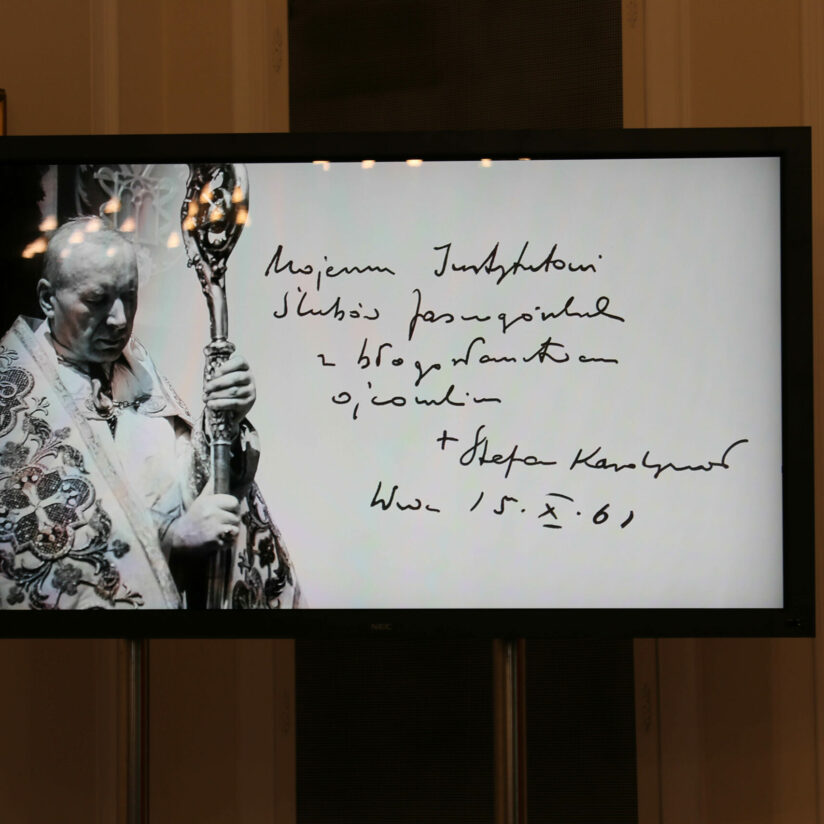 Mojemu Instytutowi
Ślubów Jasnogórskich
z błogosławieństwem
ojcowskim
+ Stefan Kardynał
Wwa 15.X.61
NEC